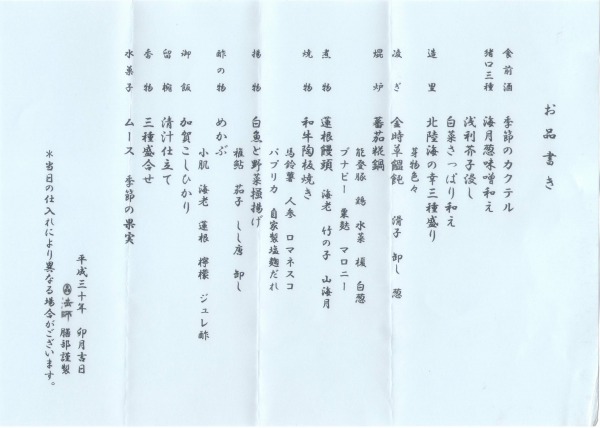 お品書き
食前酒 季節のカクテル
猪口三種 海月葱味噌和え
浅利芥子浸し
白菜さっぱり和え
造里 北陸海の幸三種盛り
芽物色々
凌ぎ 金時草饂飩 滑子 卸し 葱
焜炉 蕃茄糀鍋
能登豚 鶏 水菜 榎 白葱
ブナピー 粟麩 マロニー
煮物 蓮根饅頭 海老 竹の子 山海月
焼物 和牛陶板焼き
馬鈴薯 人参 ロマネスコ
パプリカ 自家製塩麹だれ
揚物 白魚と野菜掻揚げ
稚鮎 茄子 しし唐 卸し
酢の物 めかぶ
小肌 海老 蓮根 檸檬 ジュレ酢
御飯 加賀こしひかり
留椀 清汁仕立て
香物 三種盛合せ
水菓子 ムース 季節の果実
平成三十年 卯月吉日
膳部謹製
＊当日の仕入れにより異なる場合がございます。